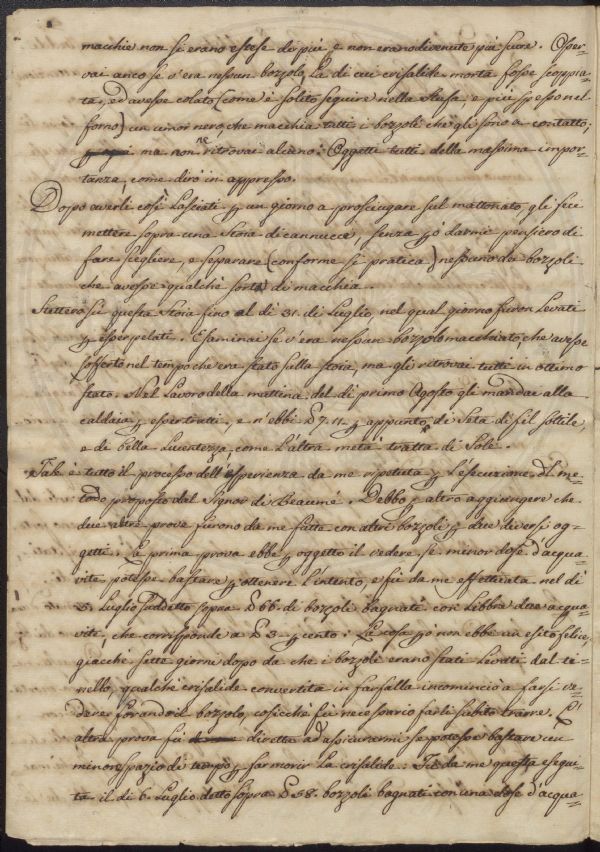 macchie non si erano estese di più, e non erano divenute più scure. Osser-
vai anco se v'era nessun bozzolo, la di cui crisalide morta fosse scoppia-
ta, ed avesse colato (come è solito seguire nella Stufa e più spesso nel
forno) un umor nero, che macchia tutti i bozzoli che gli sono a contatto;
ma non ne ritrovai alcuno: Oggetti tutti della massima impor-
tanza, come dirò in appresso.
Dopo averli così lasciati p un giorno a prosciugare sul mattonato, gli feci
mettere sopra una Stoia di cannucce, senza pò darmi pensiero di
fare scegliere, e separare (conforme si pratica) nessuno de bozzoli
che avesse qualche sorta di macchia.
Stettero sù questa Stoia fino al di 31. di Luglio, nel qual giorno furon levati
p esser spelati. Esaminai se v'era nessun bozzolo macchiato, che avesse
sofferto nel tempo che era stato sulla stoia, ma gli ritrovai tutti in ottimo
stato. Nel Lavoro della mattina del di primo Agosto gli mandai alla
caldaia p esser tratti, e n'ebbi £ 7. 11. p appunto di Seta di fil sottile,
e di bella Lucentezza, come l'altra metà tratta di Sole.
Tale è tutto il processo dell'esperienza da me ripetuta p l'esecuzione del me-
todo proposto dal Signor di Beaumé. Debbo p altro aggiungere che
due altre prove furono da me fatte con altri bozzoli p due diversi og-
getti. La prima prova ebbe p oggetto il vedere, se minor dose d'acqua-
vite potesse bastare p ottenere l'intento, e fù da me effettuata nel di
5. Luglio suddetto sopra £ 66. di bozzoli bagnati con libbre due acqua-
vite, che corrisponde a £ 3 p cento: La cosa pò non ebbe un esito felice,
giacchè sette giorni dopo da che i bozzoli erano stati levati dal ti-
nello, qualche crisalide convertita in farfalla incominciò a farsi ve-
dere forando il bozzolo, cosicchè fù necessario farli subito trarre. L'
altra prova fù diretta ad assicurarmi se potesse bastare un
minore spazio di tempo p far morir la crisalide: Fù da me questa esegui-
ta il di 6. Luglio detto sopra £ 58. bozzoli bagnati con una dose d'acqua-